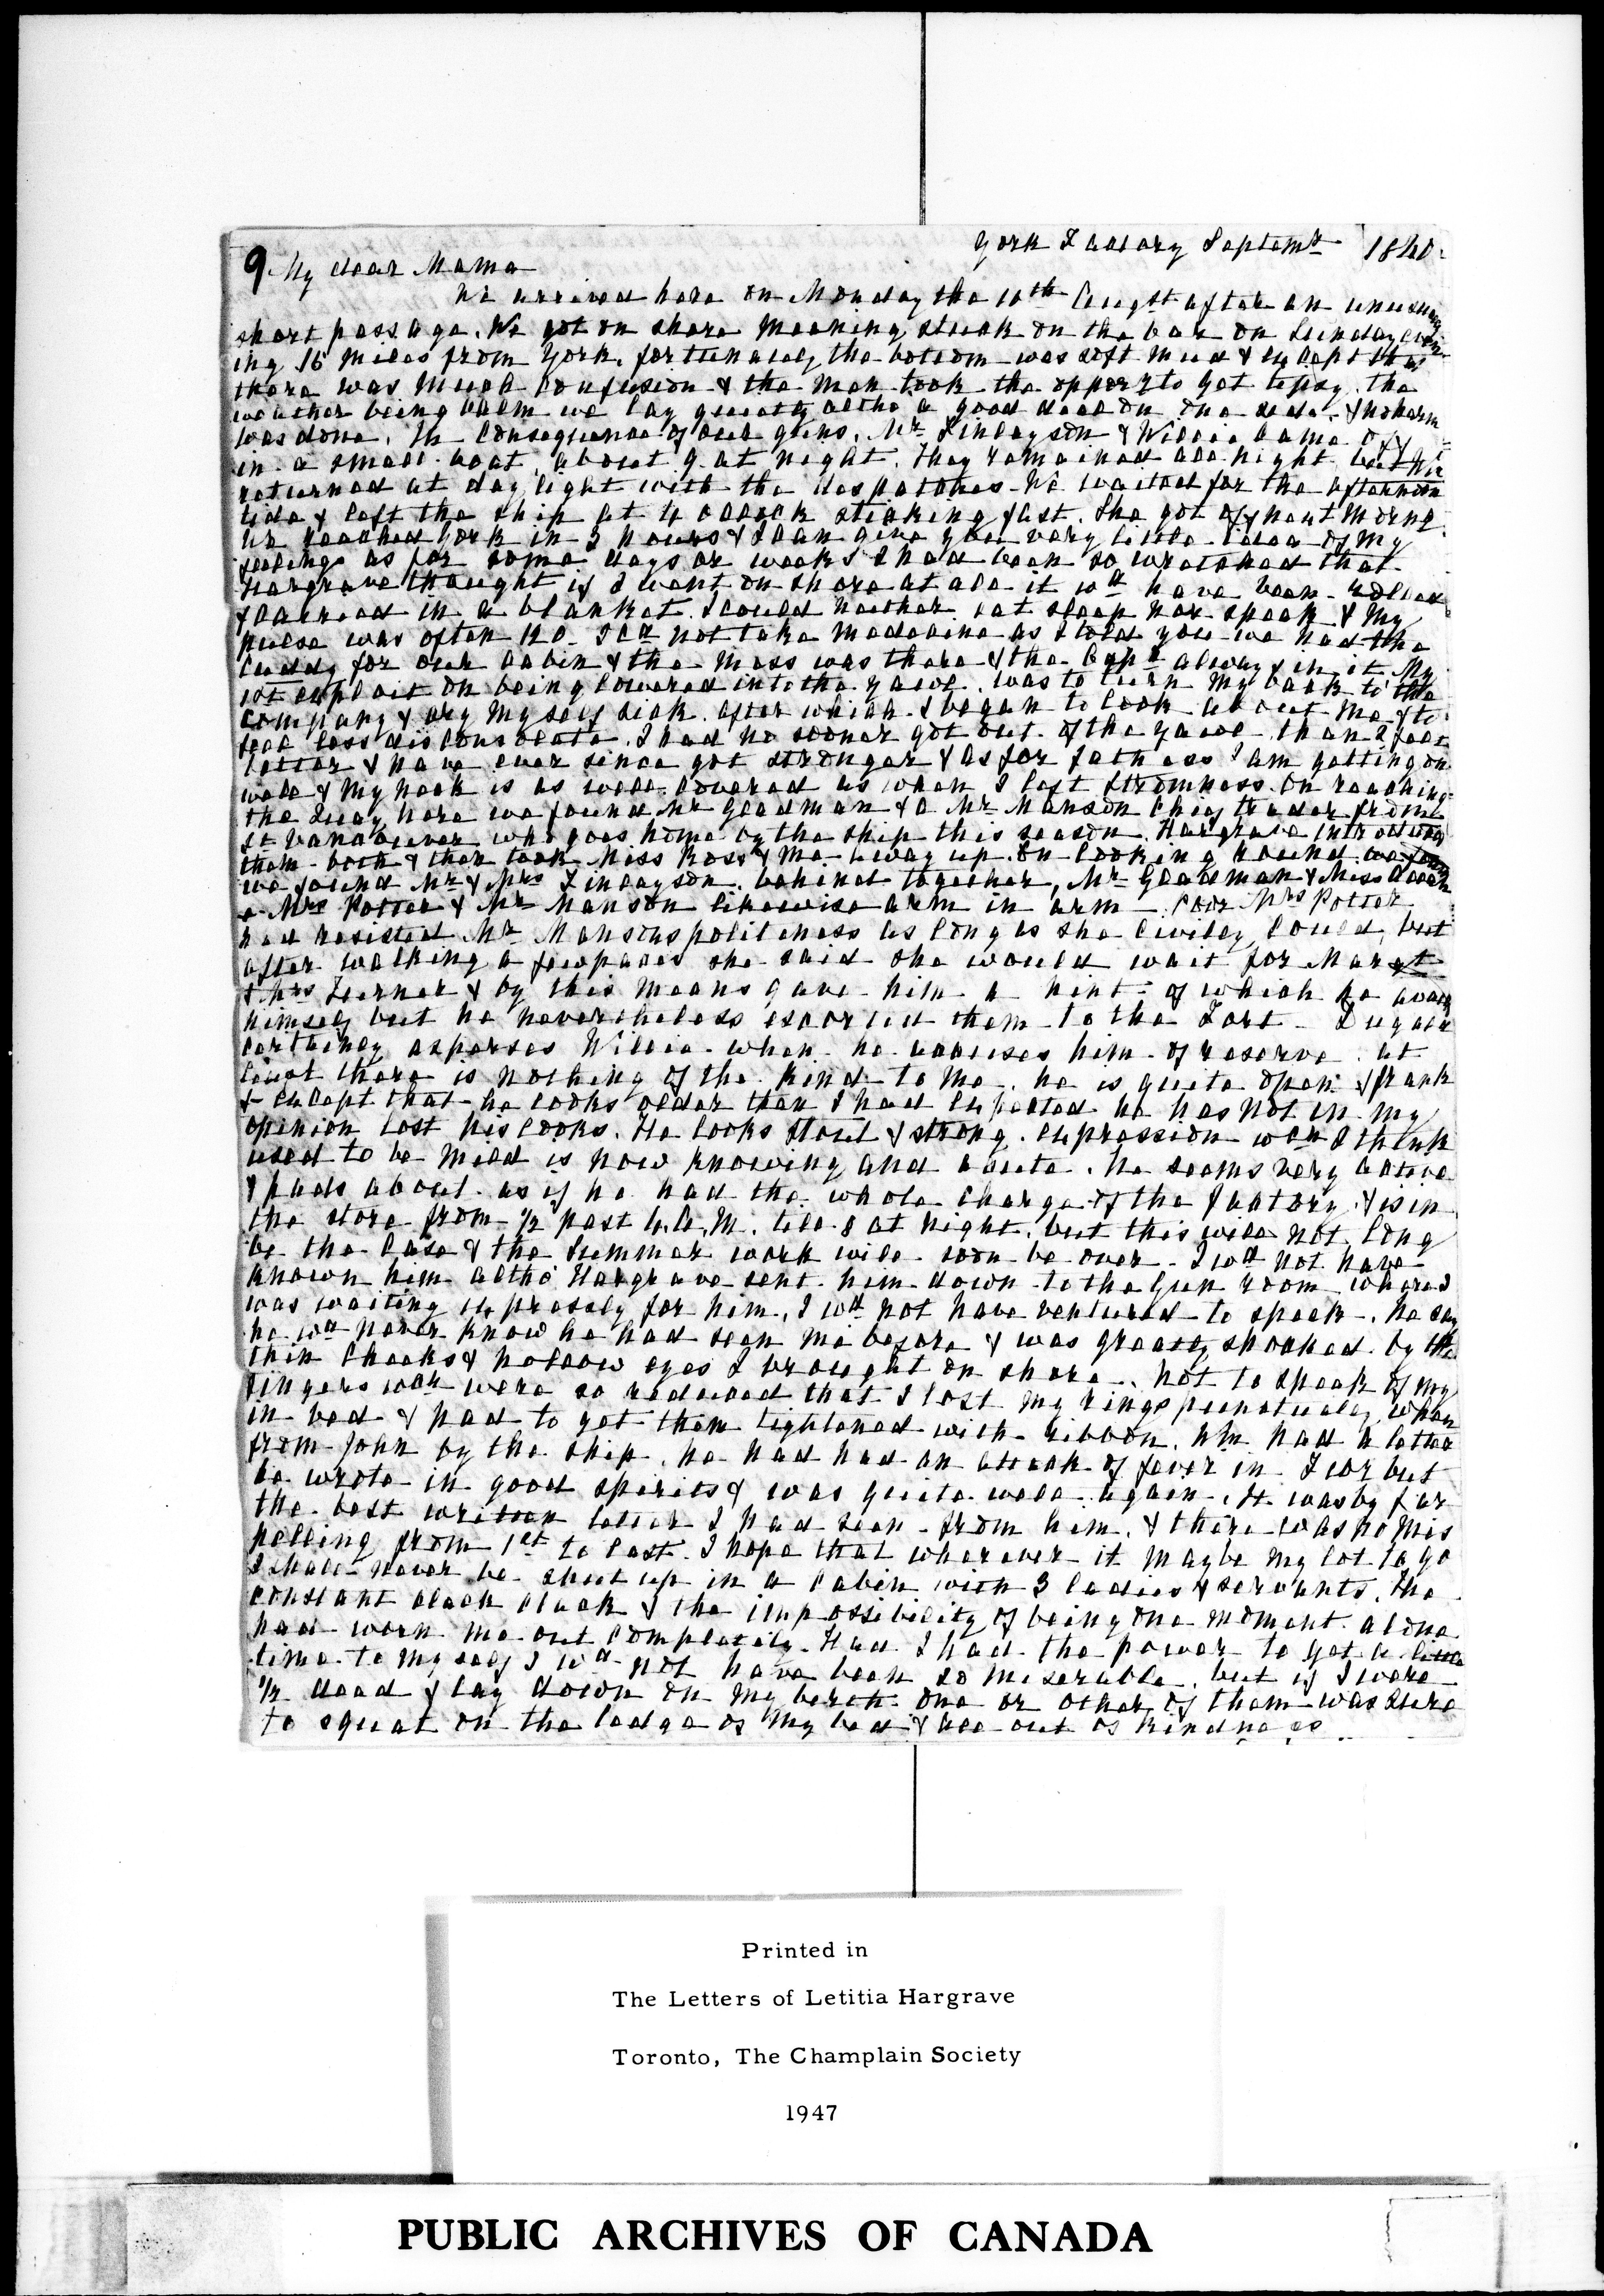 York Factory Septemr 1840.
9 My dear Mama
We arrived here on Monday the 10th Augst after an unusually
short passage. We got on shore meaning stuck on the bar on Sunday even
ing 16 miles from York, fortunately the bottom was soft mud & except that
there was much confusion & the men took the opporty to get tipsy the
weather being calm we lay quietly altho a good deal on one side. & no harm
was done. In consequence of our guns, Mr Finlayson & Willie came off
in a small boat about 9 at night. They remained all night but Wm
returned at day light with the despatches. We waited for the afternoon
tide & left the ship at 4 oclock sticking fast. She got off next morng.
We reached York in 3 hours & I can give you very little idea of my
feelings as for some days or weeks I had been so wretched that
Hargrave thought if I went on shore at all it wd have been rolled
& carried in a blanket. I could neither eat sleep nor speak & my
pulse was often 120. I cd not take medecine as I told you we had the
Cuddy for our cabin & the mess was there & the Capt always in it. My
1st exploit on being lowered into the yawl. was to turn my back to the
company & cry myself sick. after which I began to look about me & to
feel less disconsolate. I had no sooner got out of the yawl than I felt
better & have ever since got stronger & as for fatness I am getting on
well & my neck is as well covered as when I left Stromness. On reaching
the Quay here we found Mr Gladman & a Mr Manson Chief trader from
Ft Vancouver who goes home by the ship this season. Hargrave introduced
them both & then took Miss Ross & me away up. On looking round
we found Mr & Mrs Finlayson behind together, Mr Gladman & Miss Allan
& Mrs Potter & Mr Manson likewise arm in arm Poor Mrs Potter
had resisted Mr Mansons politeness as long as she civilly could, but
after walking a few paces she said she would wait for Margt
& Mrs Turner & by this means gave him a hint of which he availd
himself but he nevertheless escorted them to the Fort. Dugald
certainly asperses Willie when he accuses him of reserve. at
least there is nothing of the kind to me. he is quite open & frank
& except that he looks older than I had expected he has not in my
opinion lost his looks. He looks stout & strong. expression wch I think
used to be mild is now knowing and acute. he seems very active
& pads about as if he had the whole charge of the factory & is in
the store from ½ past 4 A.M. till 8 at night, but this will not long
be the case & the summer work will soon be over. I wd not have
known him altho' Hargrave sent him down to the Gun room where I
was waiting expressly for him. I wd not have ventured to speak. he says
he wd never know he had seen me before & was greatly shocked by the
thin cheeks & hollow eyes I brought on shore. not to speak of my
fingers wch were so reduced that I lost my rings when
in bed & had to get them tightened with ribbon. Wm had a letter
from John by the ship. he had had an attack of fever in but
he wrote in good spirits & was quite well again. It was by far
the best written letter I had seen from him. & there was no mis
pelling from 1st to last. I hope that wherever it may be my lot to go
I shall never be shut up in a cabin with 3 ladies & servants. The
constant clack clack & the impossibility of being one moment alone
had worn me out completely. Had I had the power to get a little
time to myself I wd not have been so miserable. but if I were
½ dead & lay down on my berth one or other of them was sure
to squat on the ledge of my bed & all out of kindness
Printed in
The Letters of Letitia Hargrave
Toronto, The Champlain Society
1947
PUBLIC ARCHIVES OF CANADA